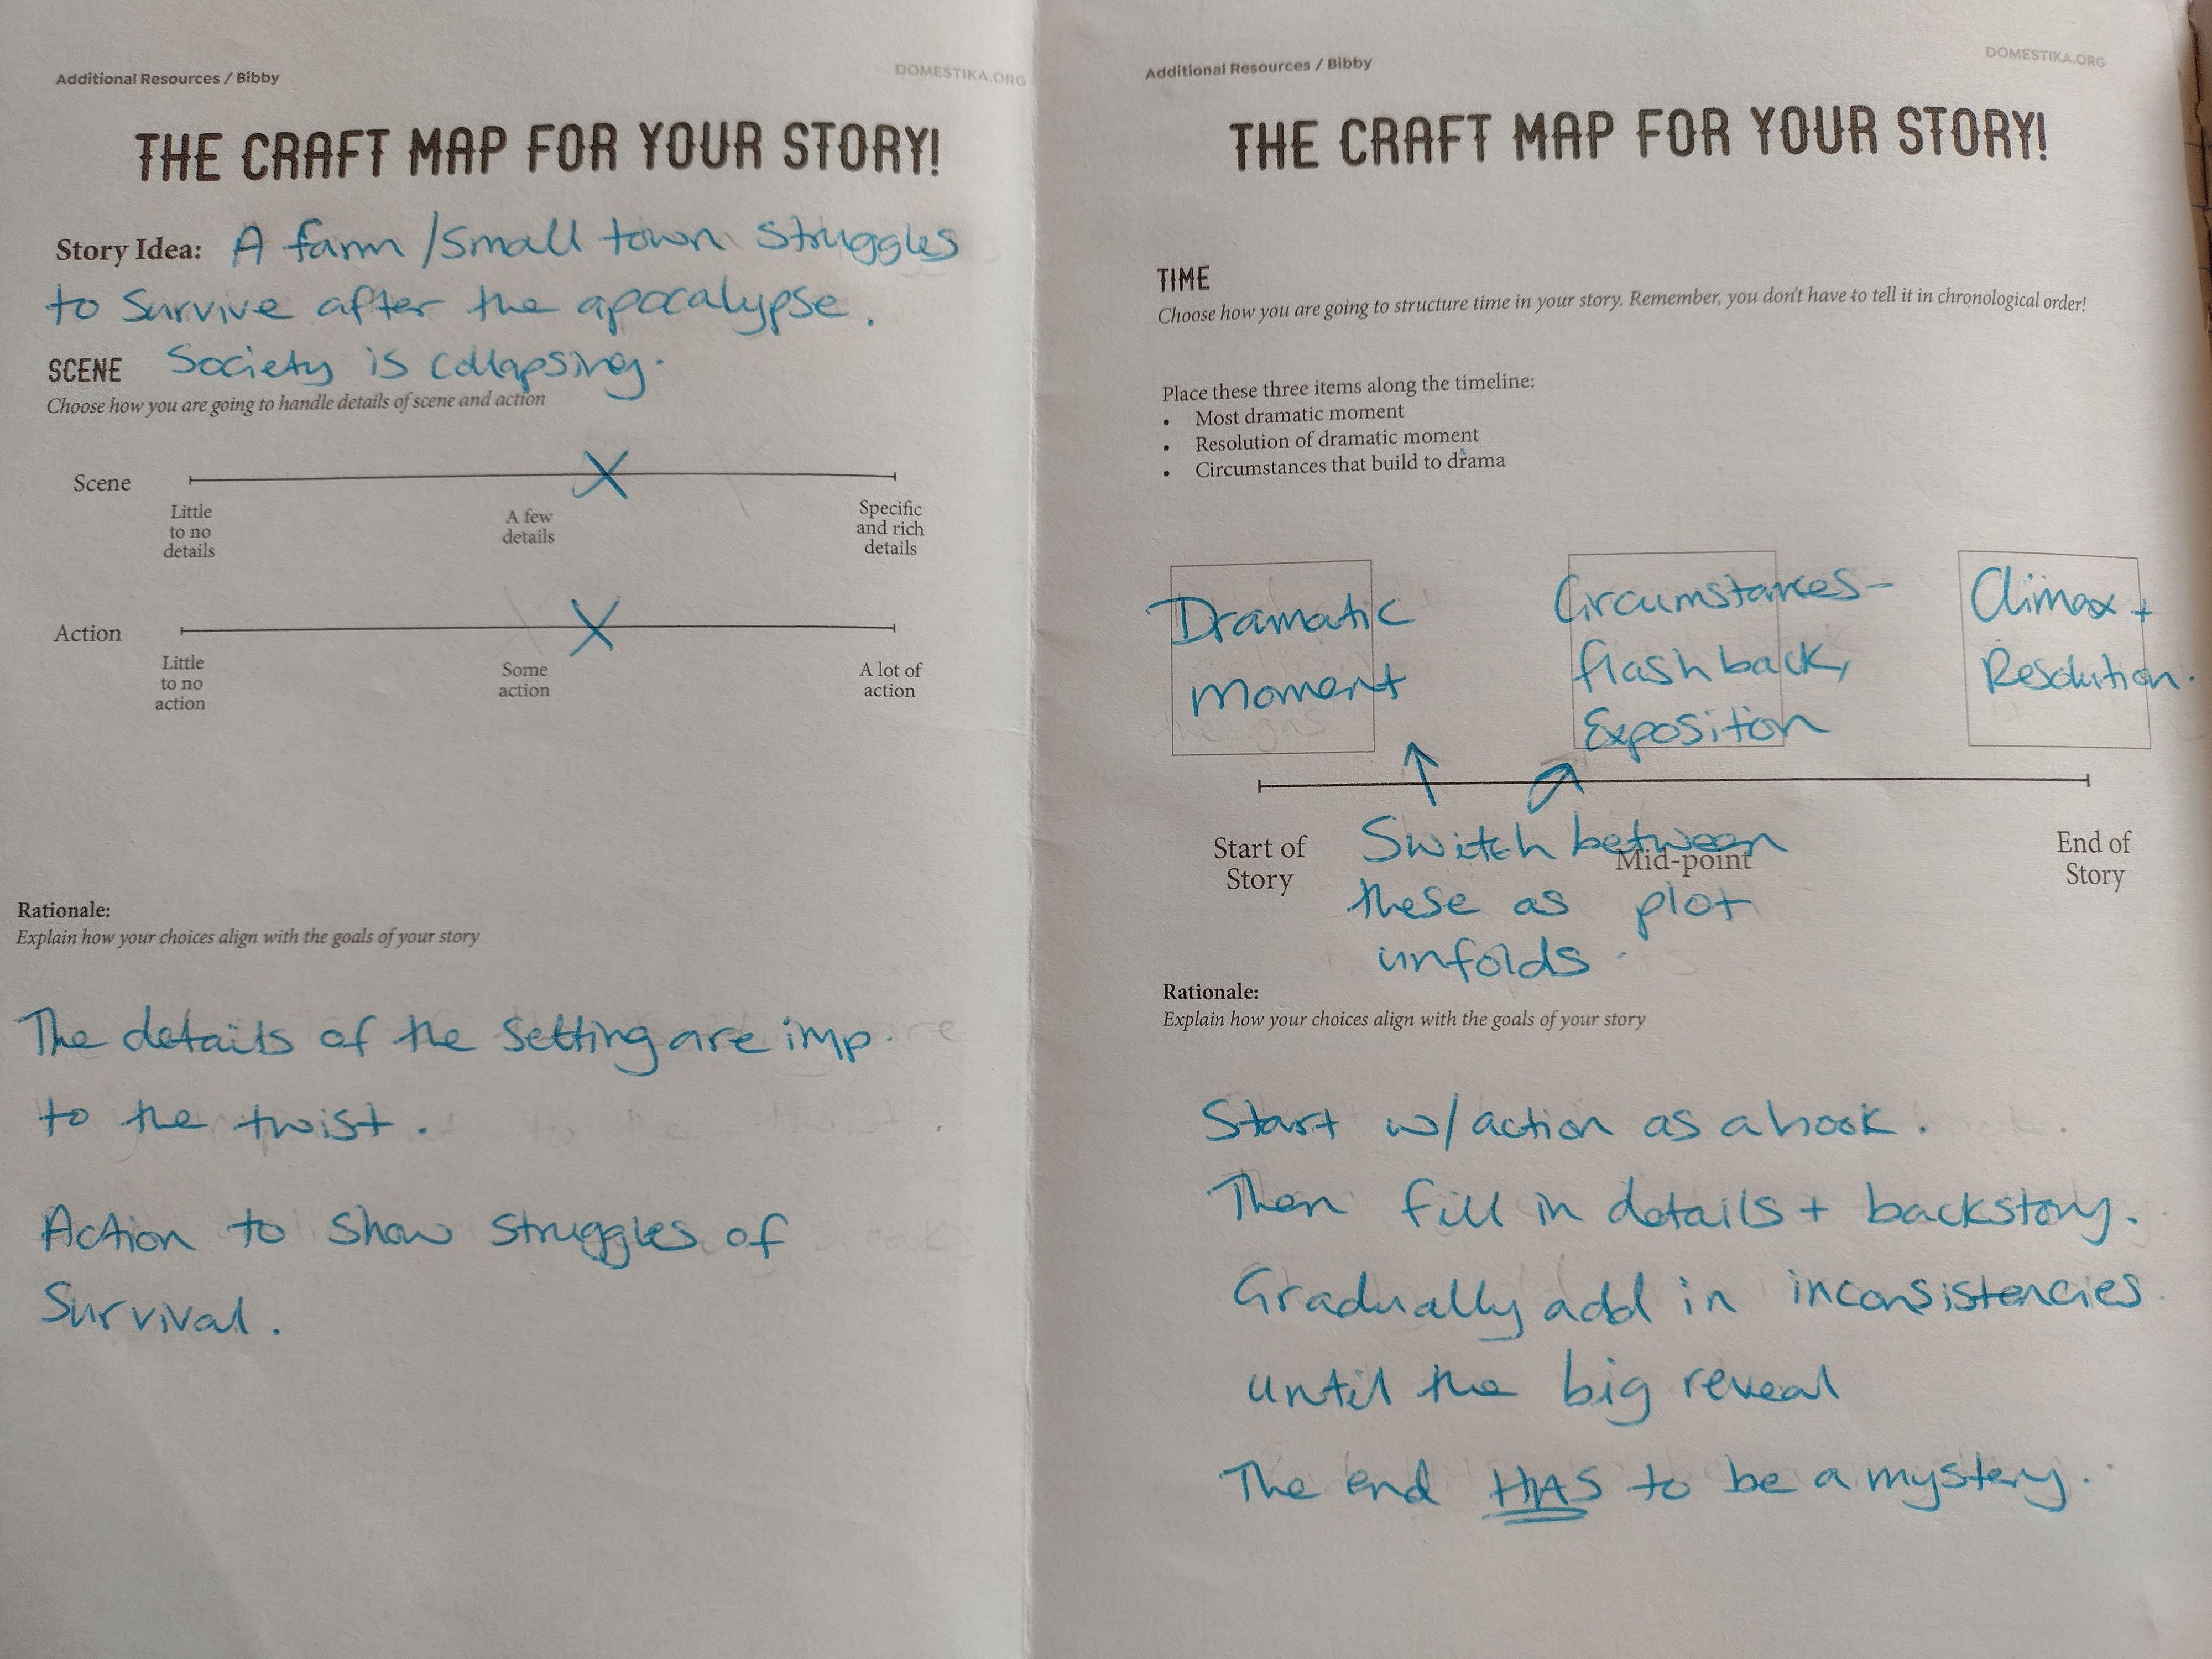 Additional Resources / Bibby
DOMESTIKA.ORG
THE CRAFT MAP FOR YOUR STORY!
Story Idea: A farm / small town struggles
to survive after the apocalypse.
SCENE Society is collapsing.
Choose how you are going to handle details of scene and action
Scene
Little
to no
details
A few
details
Specific
and rich
details
Action
Little
to no
action
Some
action
A lot of
action
Rationale:
Explain how your choices align with the goals of your story
The details of the setting are imp.
to the twist.
Action to show struggles of
Survival.
Additional Resources / Bibby
DOMESTIKA.ORG
THE CRAFT MAP FOR YOUR STORY!
TIME
Choose how you are going to structure time in your story. Remember, you don't have to tell it in chronological order!
Place these three items along the timeline:
• Most dramatic moment
• Resolution of dramatic moment
• Circumstances that build to drama
Dramatic
moment
Circumstances-
flashback,
Exposition
Climax +
Resolution.
Start of
Story
Mid-point
End of
Story
Switch between
these as plot
unfolds.
Rationale:
Explain how your choices align with the goals of your story
Start w/ action as a hook.
Then fill in details + backstory.
Gradually add in inconsistencies
until the big reveal
The end HAS to be a mystery.